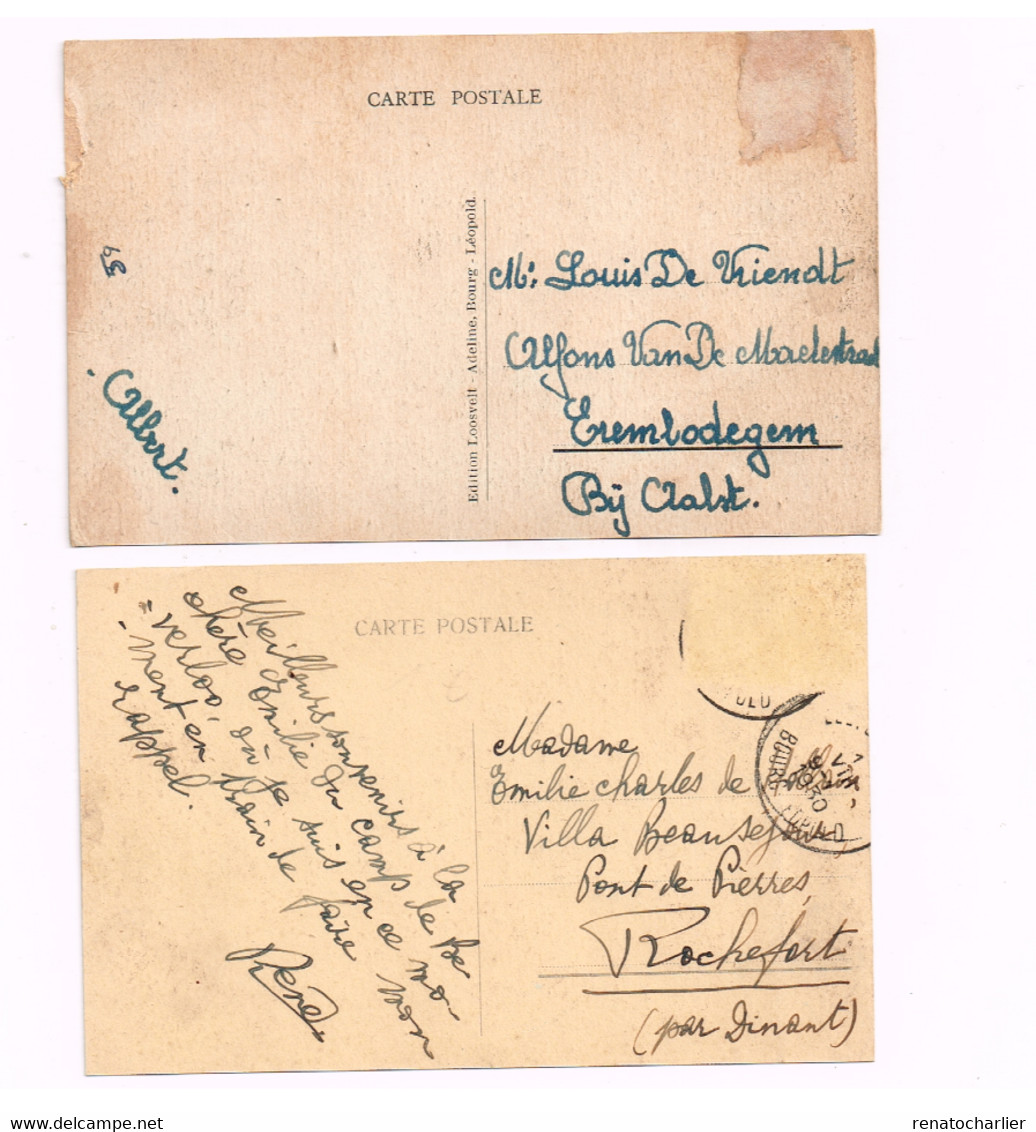 CARTE POSTALE
Edition Loosvelt - Adeline, Bourg - Léopold.
Mr Louis De Vriendt
Alfons Van De Maelestraat
Erembodegem
Bij Aalst.
Albert.
CARTE POSTALE
Meilleurs souvenirs à la
chère Emilie du camp de Be
= verloo, où je suis en ce mo-
- ment en train de faire mon
rappel.
René
Madame
Emilie Charles de
Villa Beausejour
Pont de Pierres
Rochefort
(par Dinant)
BOURG LEOPOLD
renatocharlier